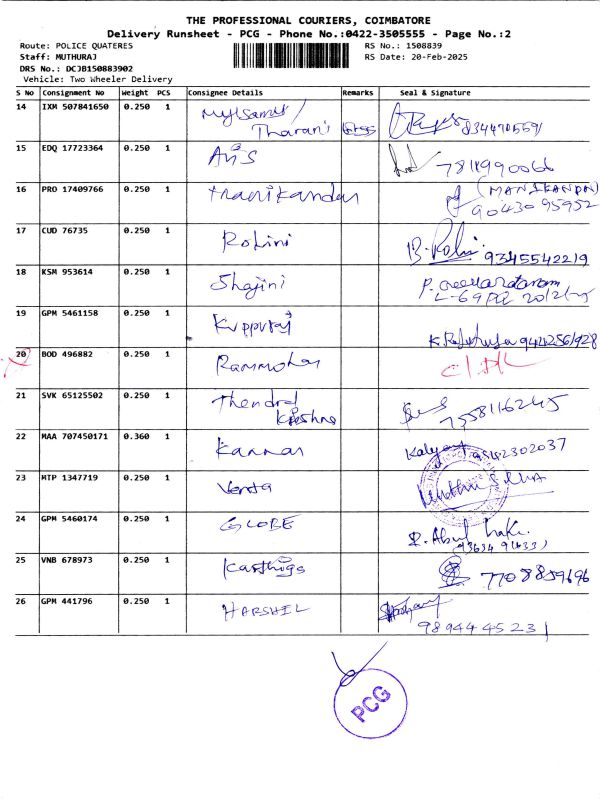 THE PROFESSIONAL COURIERS, COIMBATORE
Delivery Runsheet - PCG - Phone No.:0422-3505555 - Page No.:2
Route: POLICE QUATERES RS No.: 1508839
Staff: MUTHURAJ RS Date: 20-Feb-2025
DRS No.: DCJB150883902
Vehicle: Two Wheeler Delivery
S No Consignment No Weight PCS Consignee Details Remarks Seal & Signature
14 IXM 507841650 0.250 1 Mylsamy/
Tharani
15 EDQ 17723364 0.250 1 7811990066
16 PRO 17409766 0.250 1 Manikandan (MANIKANDAN)
9043095952
17 CUD 76735 0.250 1 Rohini B. Rohini 9345542219
18 KSM 953614 0.250 1 Shajini
L-69 20/2/25
19 GPM 5461158 0.250 1 Kuppuraj
20 BOD 496882 0.250 1 Rammohan
21 SVK 65125502 0.250 1 Thendral
Krishna 7558116245
22 MAA 707450171 0.360 1 Kannan 9542302037
23 MTP 1347719 0.250 1
24 GPM 5460174 0.250 1 GLOBE
25 VNB 678973 0.250 1 Karthiga 7708859696
26 GPM 441796 0.250 1 HARSHIL
9894445231
PCG